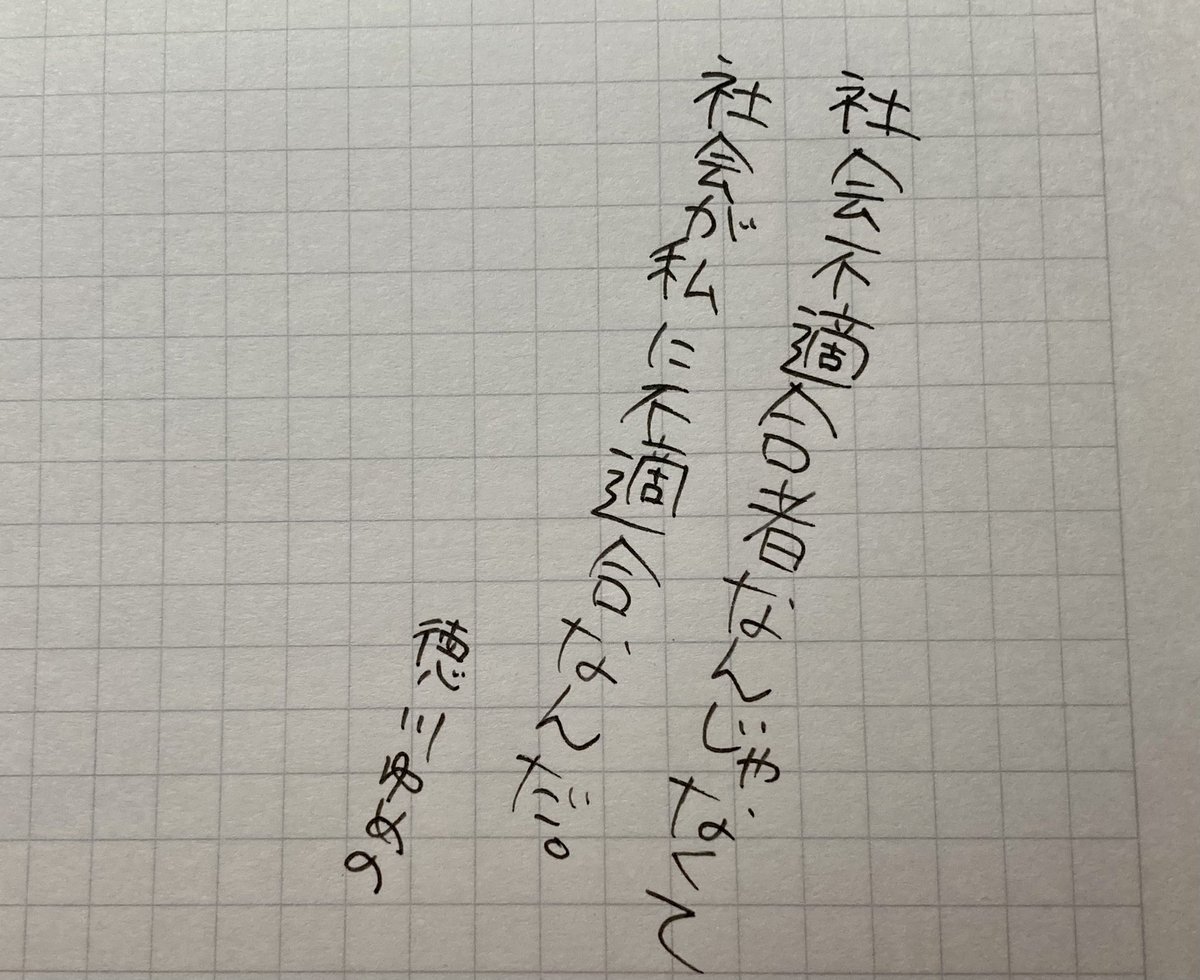 社会不適合者なんじゃなくて
社会が私に不適合なんだ。
徳川ゆめの